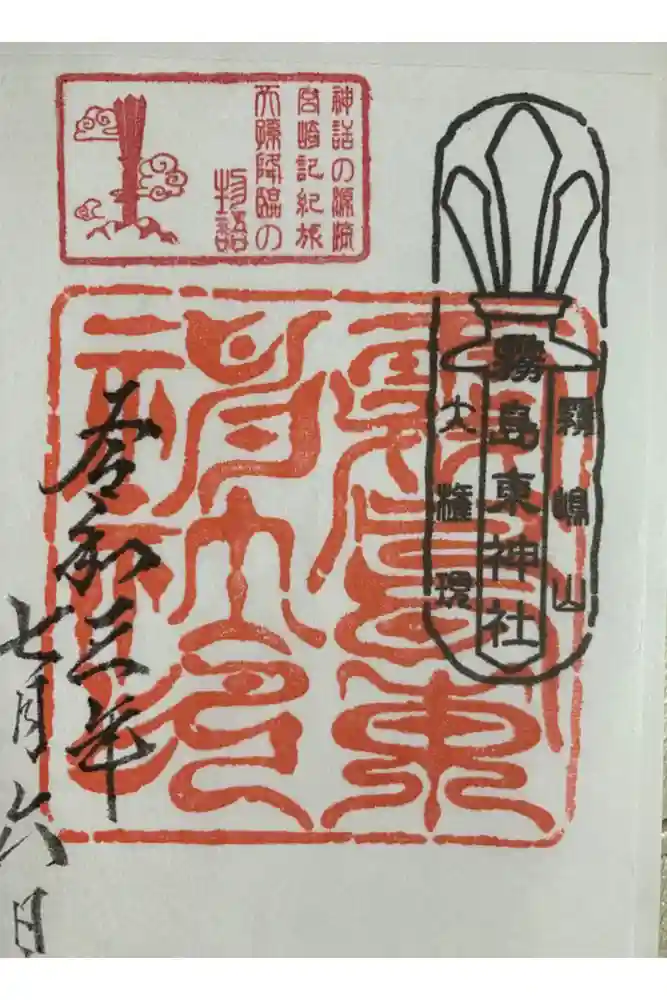 神話の源流
宮崎記紀旅
天孫降臨の
物語
霧嶋山
霧島東神社
大権現
令和三年
七月六日